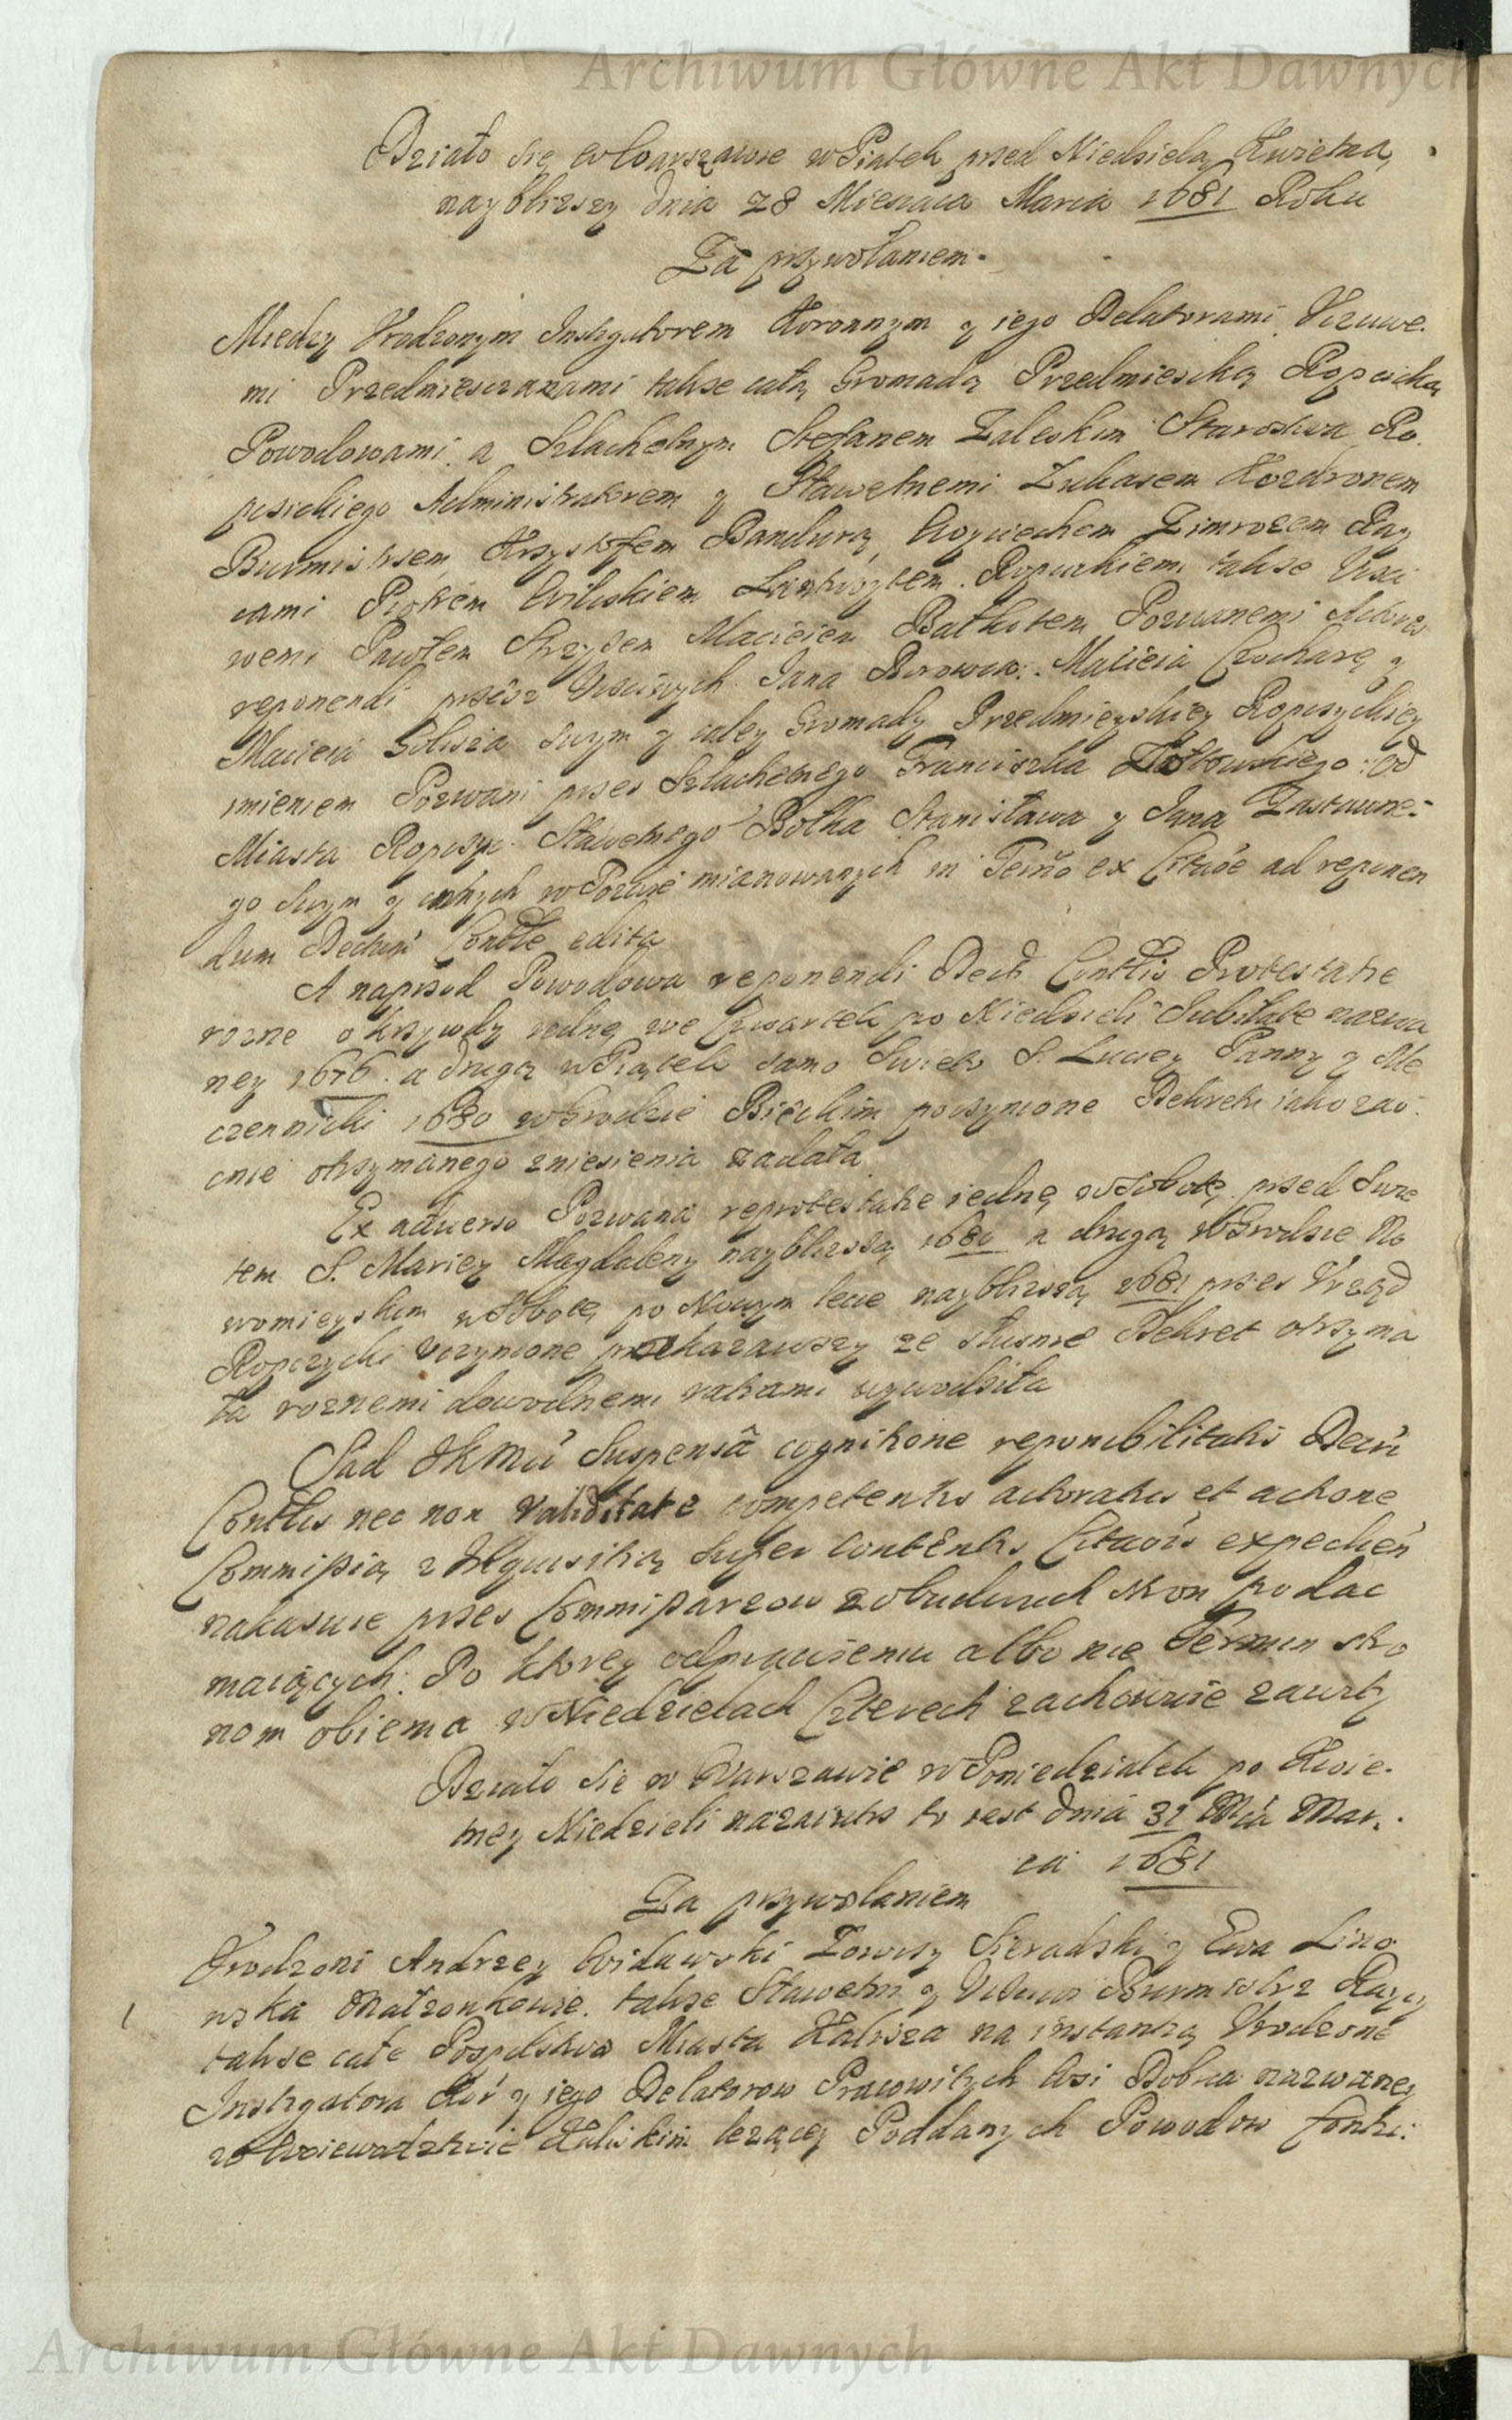 Archiwum Główne Akt Dawnych
Działo się w Warszawie w Piątek przed Niedzielą Kwietną
naybliższy dnia 28 Miesiąca Marca 1681 Roku
Za przywołaniem
Między Urodzonym Instygatorem Koronnym y iego Delatorami Uczuwe-
mi Przedmiesczanami także całą Gromadą Przedmieską Ropczicką
Powodowami a Szlachetnym Stefanem Zaleskim Starostwa Ro-
pczickiego Administratorem y Sławetnemi Łukaszem Kozdronem
Burmistrzem Krzysztofem Bandurą, Woyciechem Zimrozem Ray
cami Piotrem Lantwoytem Ropczickiemi także Ucci
wemi Pawłem Maciejem Pozwanemi
reponendi przez Uccziwych Jana Macieia y
Macieia swym y całey Gromady Przedmieyskiey Ropczyckiey
imieniem Pozwani przez Szlachetnego Franciszka od
Miasta Ropczyc Sławetnego Botka Stanisława y Jana
go swym y innych w Pozwie mianowanych in Termo ex Citaoe ad reponen
dum Decum Contle edita
A naprzod Powodowa reponendi Decti Conttis Protestatie
rozne o krzywdy iedną we Czwartek po Niedzieli Jubilate nazwa
ney 1676 a drugą w Piątek samo Swieto S. Luciey Panny y Me
czenniczki 1680 w Grodzie Bieckim poczynione Dekretu iako zao
cznie otrzymanego zniesienia żądała
Ex adverso Pozwana reprotestatie iednę w Sobotę przed Swie
tem S. Mariey Magdaleny naybliższą 1680 a drugą w Grodzie No
womieyskim w Sobotę po Nowym lecie naybliższą 1681 przez Urząd
Ropczycki uczynione pokazawszy ze słusznie Dekret otrzyma
ła roznemi dowodnemi ratiami wywodziła
Sąd JKMci Suspensa cognitione reponibilitatis Decri
Conttis nec non validitate competentis actoratus et actione
Commissią z Inquisitią super contentis Citaois expedien
nakazuie przez Commissarzow z obudwuch stron podac
maiących. Po ktorey odprawieniu albo nie Termin stro
nom obiema w Niedzielach Czterech zachowuie zawity
Działo sie w Warszawie w Poniedziałek po Kwie-
tney Niedzieli nazaiutrz to iest dnia 31 Mca Mar-
ca 1681
Za przywołaniem
Urodzeni Andrzey Widawski Łowczy Sieradzki y Ewa
Małzonkowie. także Sławetni y Burmistrz Raycy
także całe Pospolstwo Miasta Kalisza na instantią Urodzone
Instygatora Kor y iego Delatorow Pracowitych Wsi nazwaney
w Woiewodztwie Kaliskim lezącey Poddanych Powodow
Archiwum Główne Akt Dawnych